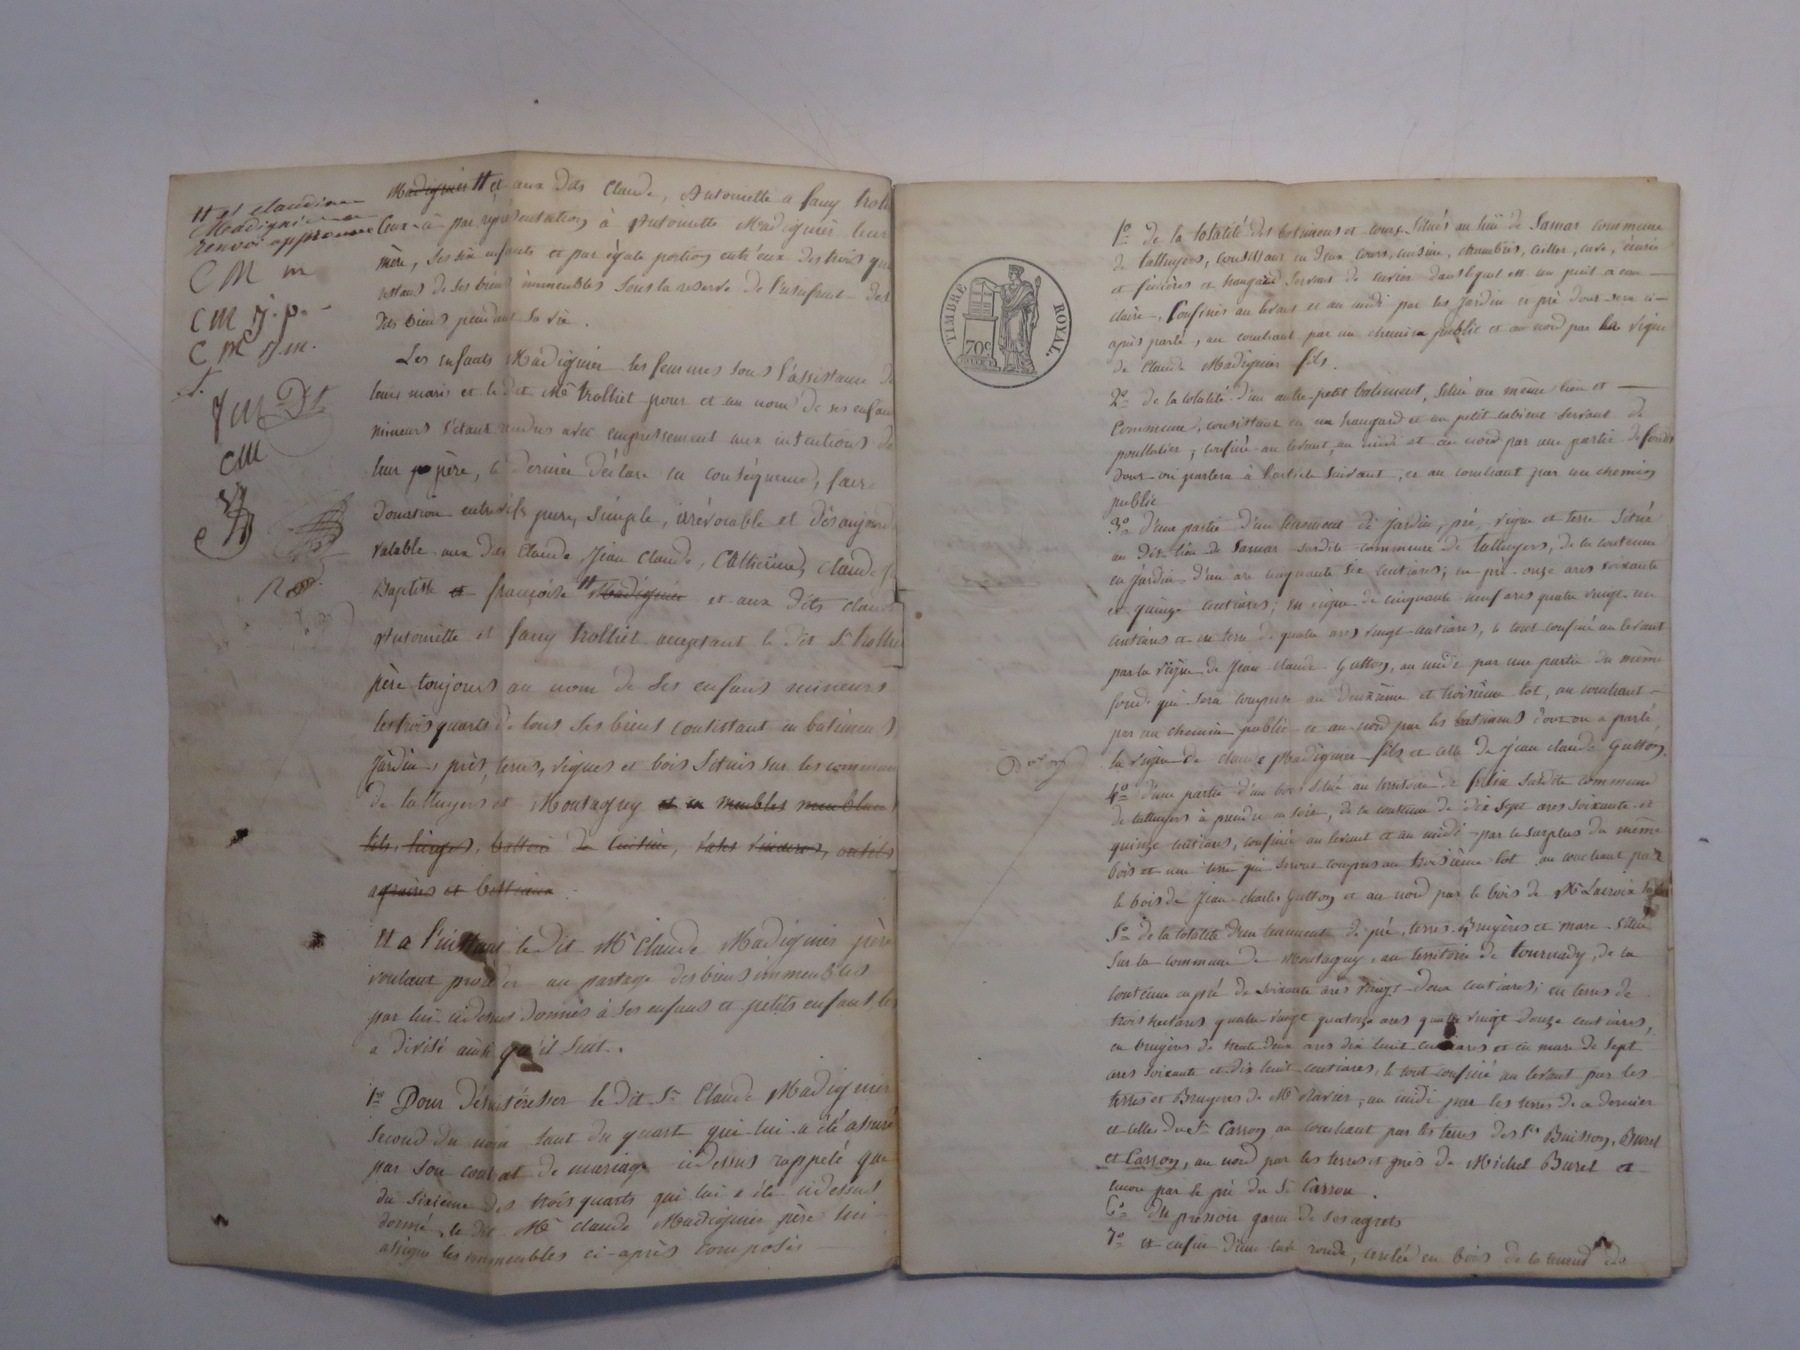 # et claudine
Madignier
renvoi approuvé
CM m
CM J. p.
C M J. m.
JM Dt
CM
Madignier # et aux dits Claude, Antoinette et fany troll
Ceux-ci par représentation à Antoinette Madignier leur
mère, ses six enfants et par égale portion entr'eux des trois qu
restans de ses biens immeubles sous la reserve de l'usufruit des
dits biens pendant sa vie.
Les enfants Madignier les femmes sous l'assistance de
leurs maris et le dit Mr trolliet pour et au nom de ses enfan
mineurs s'étant rendus avec empressement aux intentions de
leur père, ce dernier déclare en conséquence, faire
Donation entrevifs pure, simple, irrévocable et dès aujourd
valable aux dits Claude, Jean Claude, Catherine, Claude J
Baptiste et françoise # Madignier et aux dits claude
Antoinette et fany trolliet acceptant le dit Sr trolli
père toujours au nom de ses enfans mineurs
les trois quarts de tous ses biens consistant en batimens
Jardin, près, terres, vignes et bois situés sur les commun
de talluyers et Montagny et en meubles meublans
lits, linges, batterie de cuisine, vases vinaires, outils
agraires et bestiaux.
Et à l'instant le dit Mr Claude Madignier père
voulant procéder au partage des biens immeubles
par lui cidessus donnés à ses enfans et petits enfans, les
a divisé ainsi qu'il suit.
1o Pour désintéresser le dit Sr Claude Madignier
second du nom tant du quart qui lui a été assuré
par son contrat de mariage cidessus rappelé que
du sixième des trois quarts qui lui a été cidessus
donné, le dit Mr Claude Madignier père lui
assigne les immeubles ci-après composés
TIMBRE ROYAL.
70c
1o de la totalité des batimens et cours situés au lieu de Samar commune
de talluyers, consistant en deux cours, cuisine, chambres, cellier, cave, écurie
et fenières et hangard servant de cuvier dans lequel est un puit à eau
claire, Confinés au levant et au midi par les jardin et pré dont sera ci-
après parlé, au couchant par un chemin public et au nord par la vigne
de Claude Madignier fils.
2o de la totalité d'un autre petit batiment, situé au même lieu et
Commune, consistant en un hangard et un petit cabinet servant de
poullalier, confiné au levant, au midi et au nord par une partie de fonds
dont on parlera à l'article suivant, et au couchant par un chemin
public
3o d'une partie d'un tenement de jardin, pré, vigne et terre situé
au dit lieu de Samar susdite commune de talluyers, de la contenue
en jardin d'un are cinquante six centiares; en pré onze ares soixante
et quinze centiares; en vigne de cinquante neuf ares quatre vingt un
centiares et en terre de quatre ares vingt centiares, le tout confiné au levant
par la vigne de Jean Claude Gutton, au midi par une partie du même
fonds qui sera comprise au deuxième et troisième lot, au couchant
par un chemin public et au nord par les batimens dont on a parlé,
la vigne de claude Madignier fils et celle de Jean claude Gutton.
4o d'une partie d'un bois situé au territoire de susdite commune
de talluyers à prendre au soir, de la contenue de dix sept ares soixante et
quinze centiares, confiné au levant et au midi par le surplus du même
bois et une terre qui seront compris au troisième lot au couchant par
le bois de Jean charles Gutton et au nord par le bois de Mr Lacroix
5o de la totalité d'un tenement de pré, terres, Bruyères et mare situé
sur la commune de Montagny, au territoire de tournady, de la
contenue en pré de soixante ares vingt deux centiares; en terres de
trois hectares quatre-vingt quatorze ares quatre vingt douze centiares,
en bruyères de trente deux ares dix huit centiares et en mare de sept
ares soixante et dix huit centiares, le tout confiné au levant par les
terres et Bruyeres de Mr Ravier, au midi par les terres de ce dernier
et celles du Sr Carron au couchant par les terres des Srs Buisson, Burel
et Carron, au nord par les terres et prés de Michel Burel et
encore par le pré du Sr Carron.
6o du pressoir garni de ses agrets
7o et enfin d'une cuve ronde, cerclée en bois de la teneur de